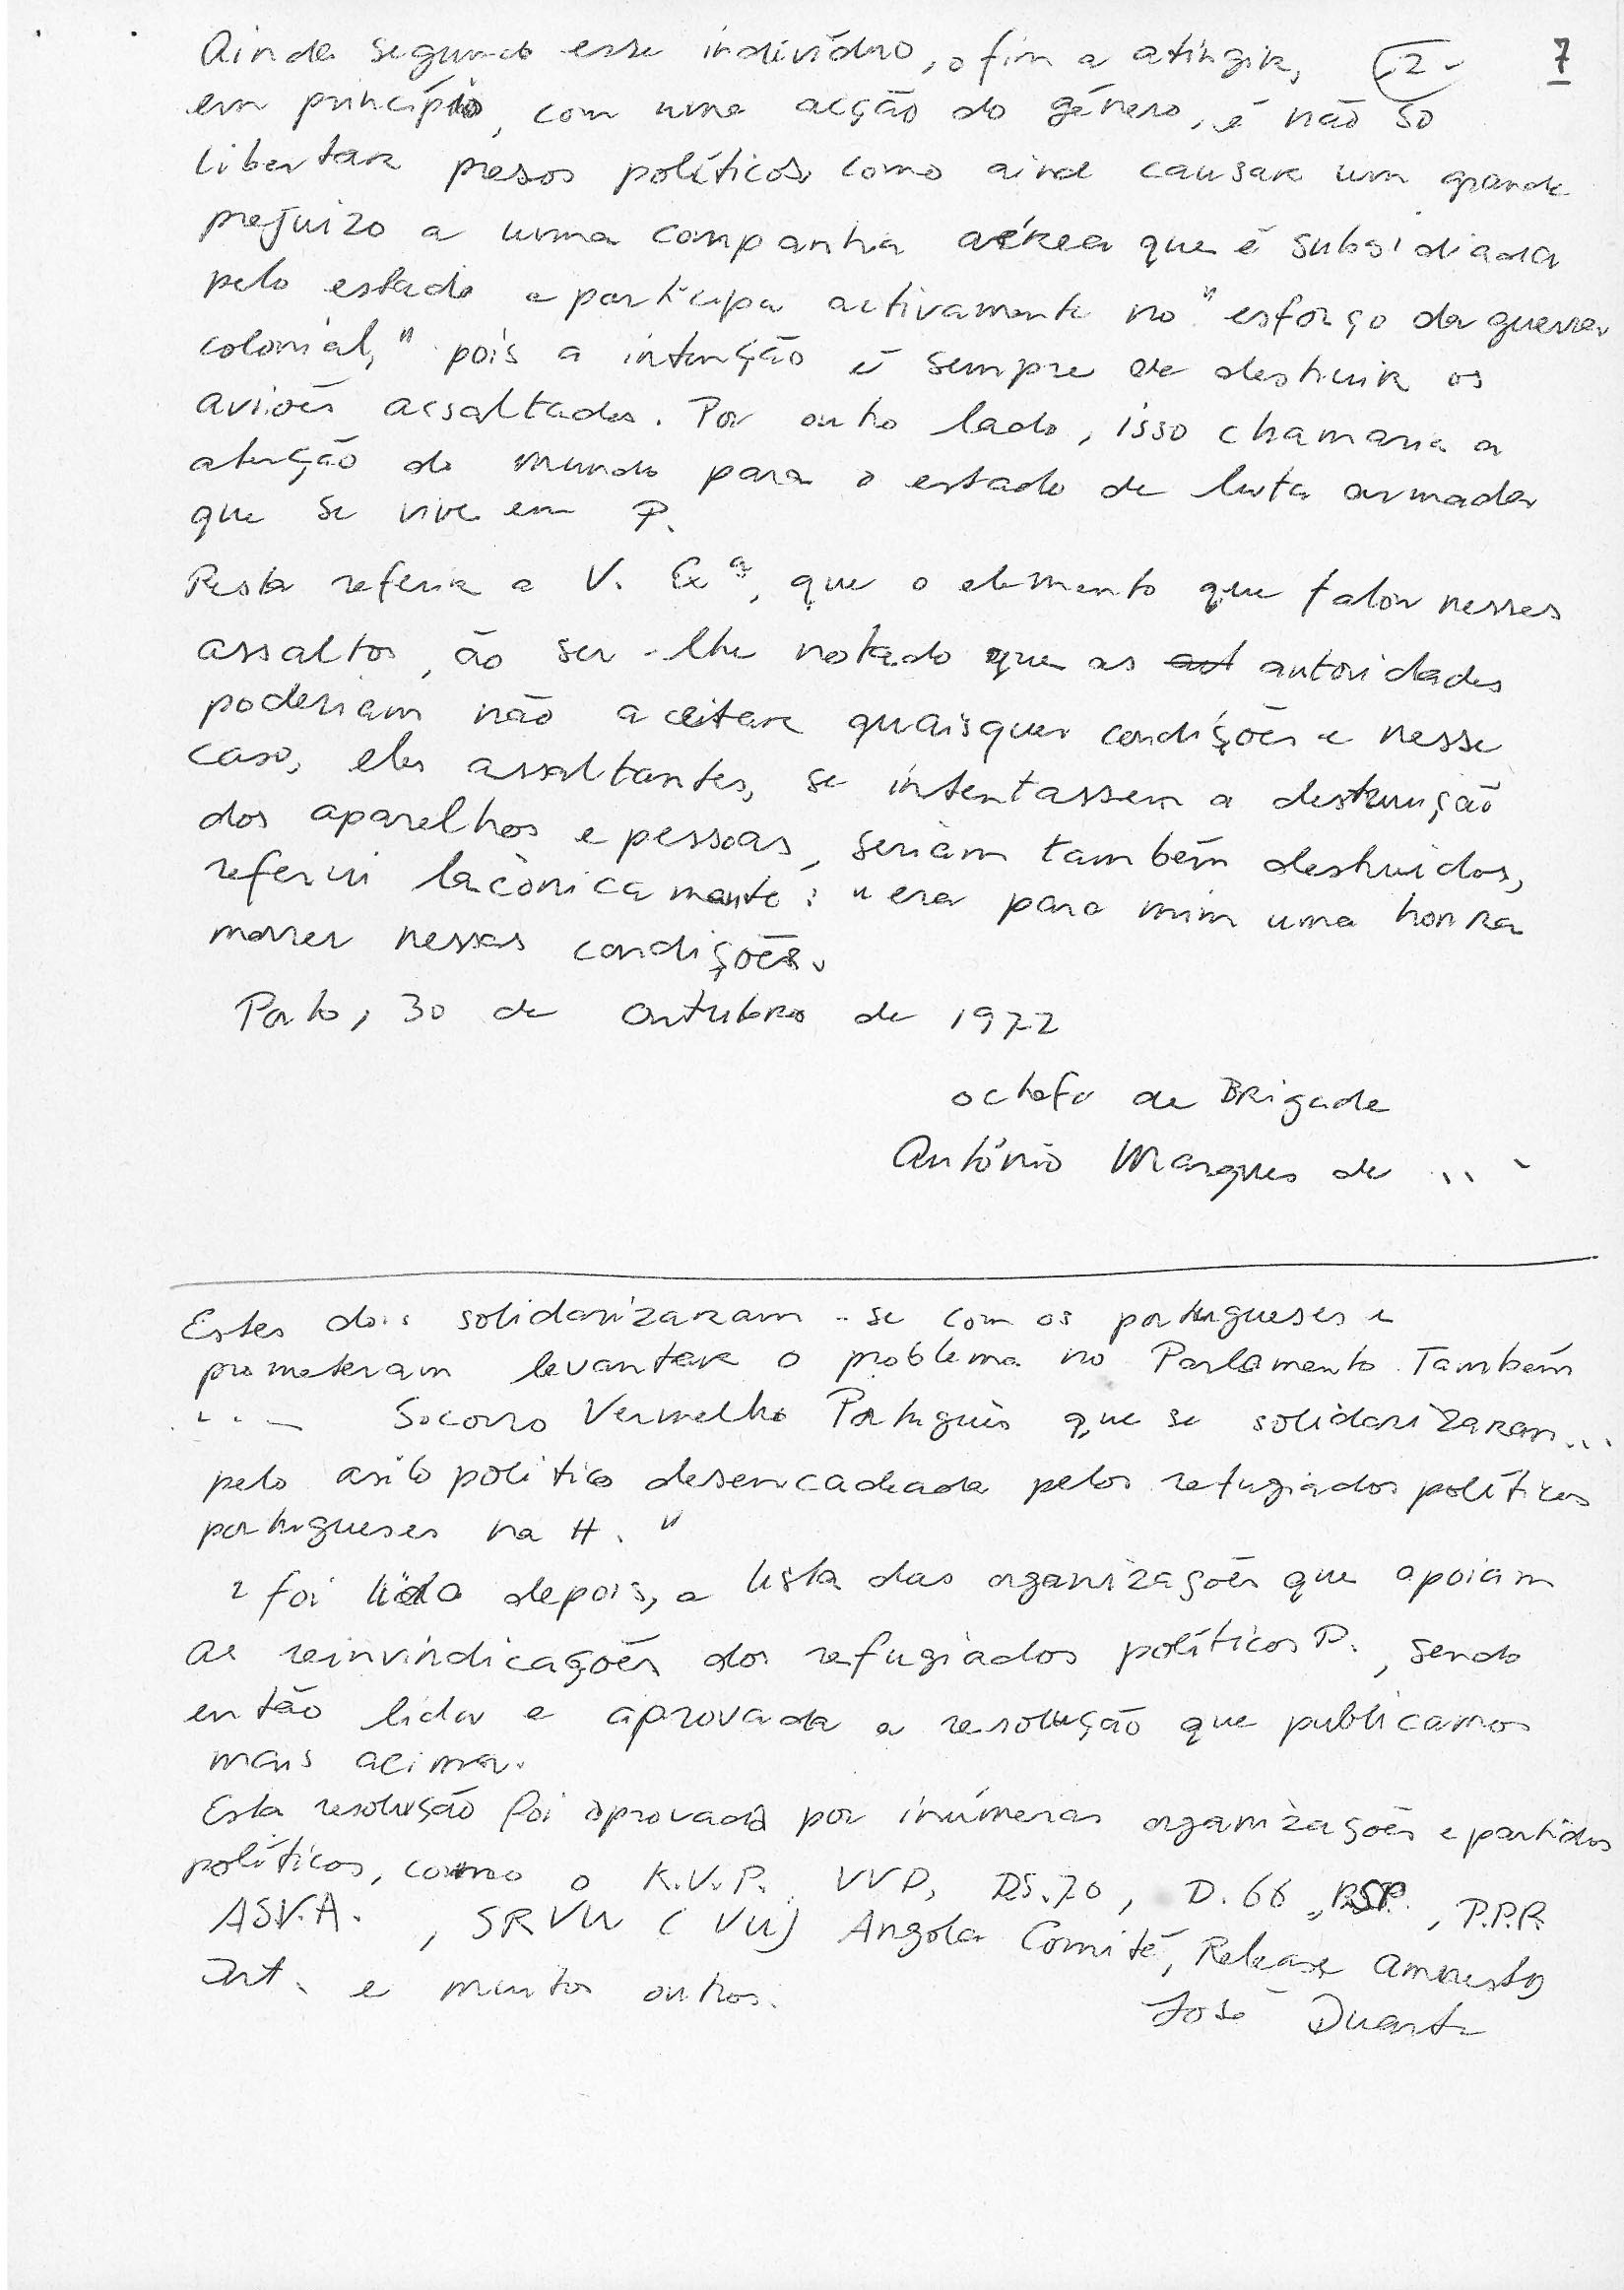 Ainda segundo esse indivíduo, o fim a atingir, -2- 7
em princípio, com uma acção do género, é não só
libertar presos políticos como ainda causar um grande
prejuizo a uma companhia aérea que é subsidiada
pelo estado e participa activamente no "esforço da guerra
colonial," pois a intenção é sempre de destruir os
aviões assaltados. Por outro lado, isso chamaria a
atenção do mundo para o estado de luta armada
que se vive em P.
Resta referir a V. Exª, que o elemento que falou nesses
assaltos, ao ser-lhe notado que as autoridades
poderiam não aceitar quaisquer condições e nesse
caso, eles assaltantes, se intentassem a destruição
dos aparelhos e pessoas, seriam também destruidos,
referiu lacònicamente: "era para mim uma honra
morrer nessas condições.
Porto, 30 de Outubro de 1972
o chefe de Brigada
António Marques de ...
Estes dois solidarizaram-se com os portugueses e
prometeram levantar o problema no Parlamento. Também
... Socorro Vermelho Português que se solidarizaram...
pelo asilo politico desencadeada pelos refugiados políticos
portugueses na H."
foi lida depois, a lista das organizações que apoiam
as reinvindicações dos refugiados políticos P., sendo
então lida e aprovada a resolução que publicamos
mais acima.
Esta resolução foi aprovada por inúmeras organizações e partidos
políticos, como o K.V.P. VVD, DS.70, D.66, P.S.P., P.P.R.
ASV.A., SRVU (VU) Angola Comité, Release, Amnesty
Int. e muitos outros.
José Duarte